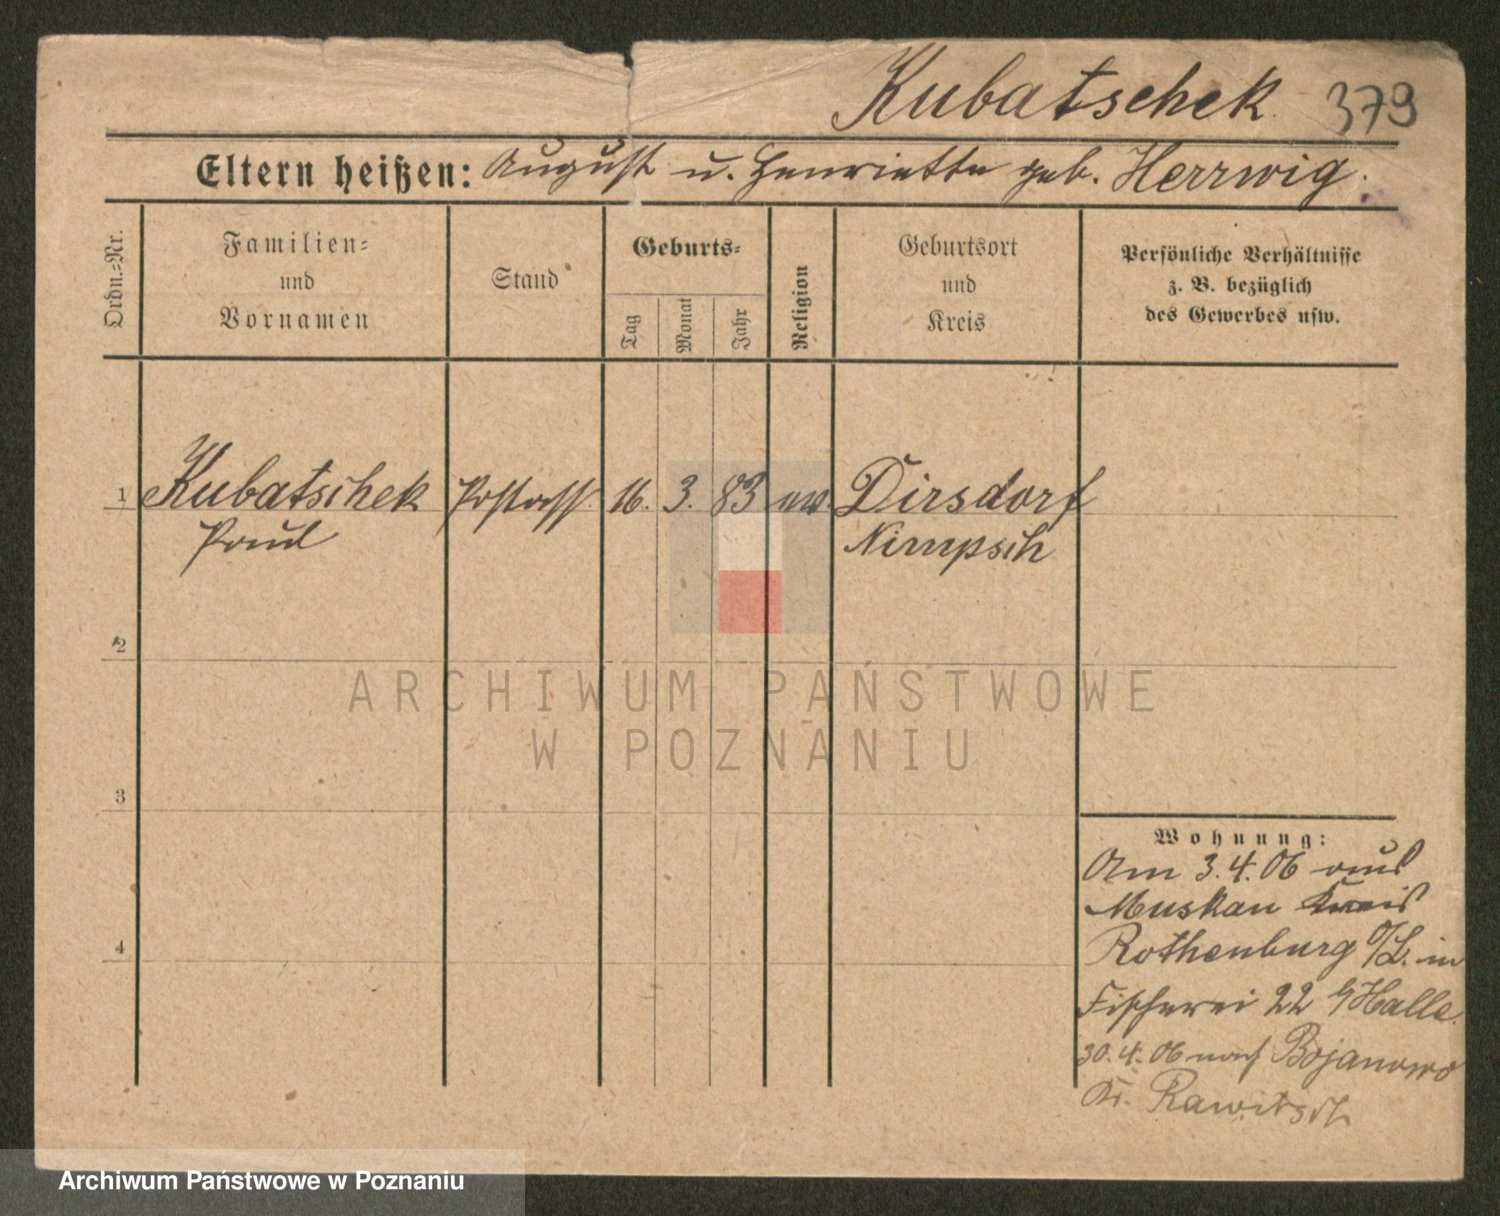 Kubatschek 379
Eltern heißen: August u. Henriette geb. Herrwig.
Ordn.=Nr.
Familien=
und
Vornamen
Stand
Geburts=
Tag
Monat
Jahr
Religion
Geburtsort
und
Kreis
Persönliche Verhältnisse
z. B. bezüglich
des Gewerbes usw.
1 Kubatschek Postass. 16. 3. 83 ev. Dirsdorf
Paul Nimpsch
2
ARCHIWUM PAŃSTWOWE
W POZNANIU
3
Wohnung:
Am 3.4.06 aus
Muskau Kreis
4
Rothenburg O/L. in
Fischerei 22 b/Halle.
30.4.06 nach Bojanowo
Kr. Rawitsch
Archiwum Państwowe w Poznaniu